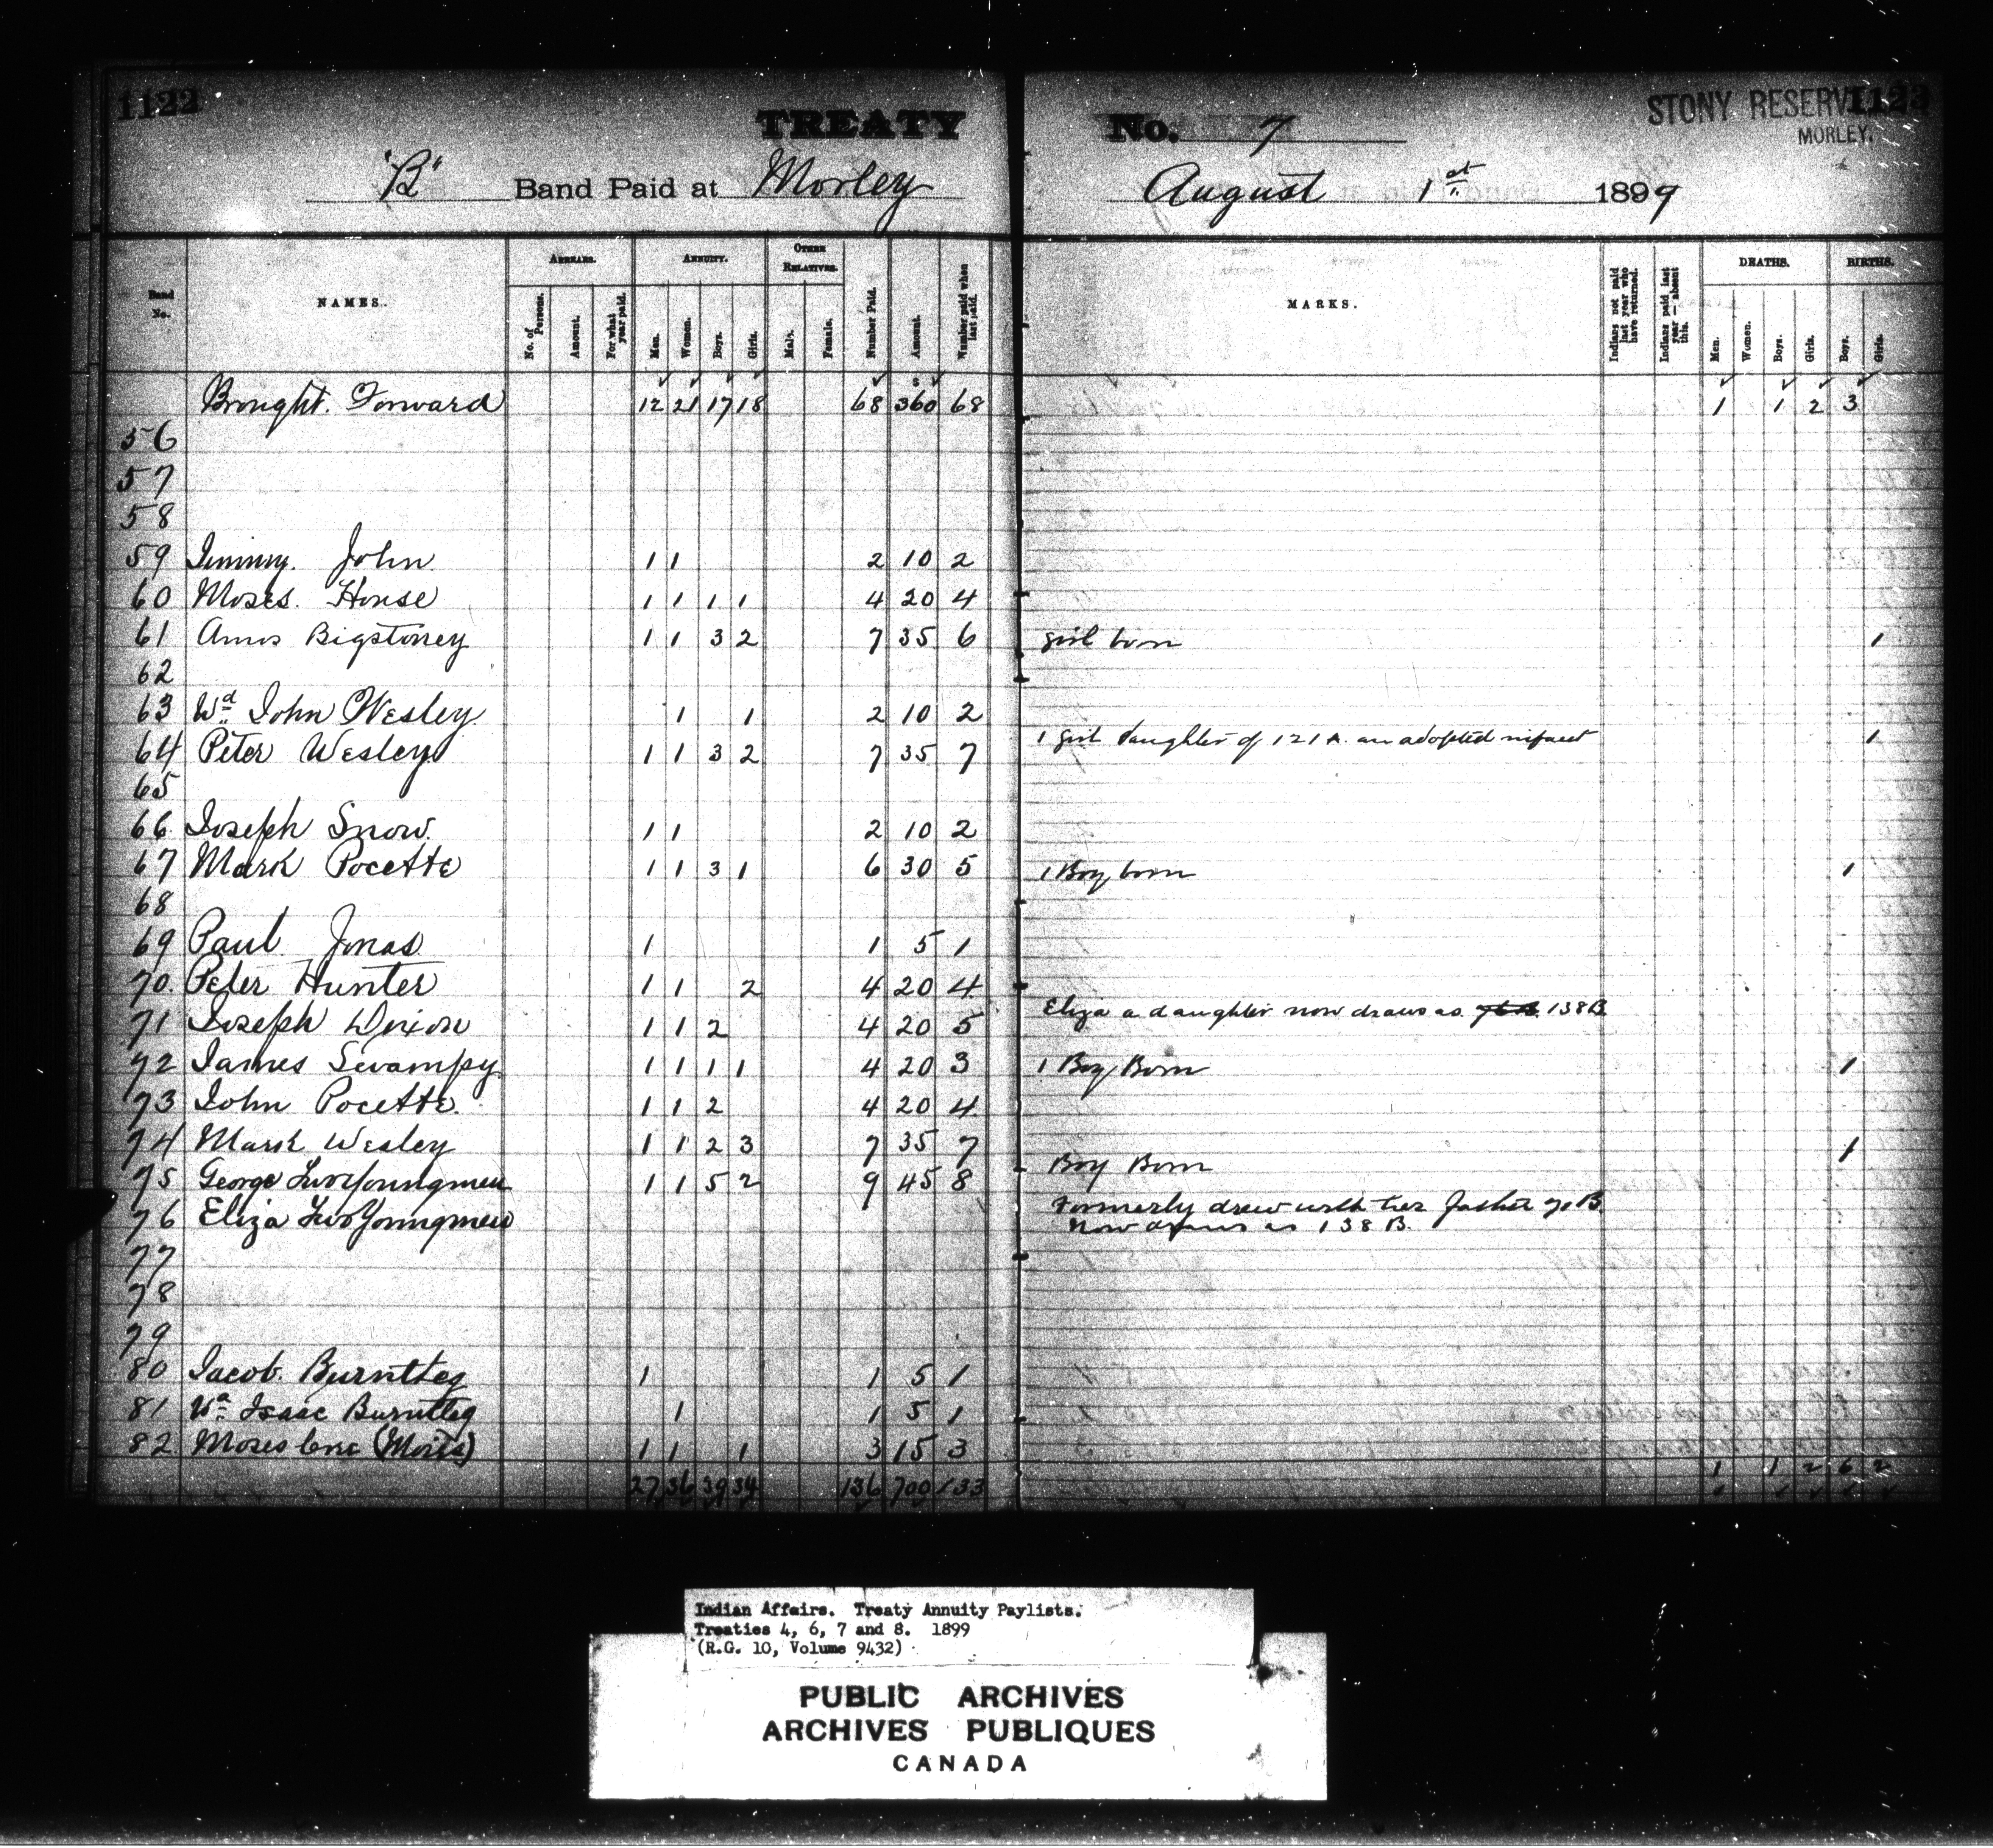 1122 TREATY No. 7 STONY RESERVE 1123
MORLEY.
"B" Band Paid at Morley August 1st 1899
Band No. NAMES. ARREARS. ANNUITY. OTHER RELATIVES. Number Paid. Amount. Number paid when last paid. MARKS. Indians not paid last year who have returned. Indians paid last year — absent this. DEATHS. BIRTHS.
No. of Persons. Amount. For what year paid. Men. Women. Boys. Girls. Male. Female. Men. Women. Boys. Girls. Boys. Girls.
Brought Forward 12 21 17 18 68 360 68 1 1 2 3
56
57
58
59 Jimmy John 1 1 2 10 2
60 Moses House 1 1 1 1 4 20 4
61 Amos Bigstoney 1 1 3 2 7 35 6 girl born 1
62
63 Wd. John Wesley 1 1 2 10 2
64 Peter Wesley 1 1 3 2 7 35 7 1 girl daughter of 121 A. an adopted infant 1
65
66 Joseph Snow 1 1 2 10 2
67 Mark Pocette 1 1 3 1 6 30 5 1 Boy born 1
68
69 Paul Jonas 1 1 5 1
70. Peter Hunter 1 1 2 4 20 4
71 Joseph Dixon 1 1 2 4 20 5 Eliza a daughter now draws as 138 B.
72 James Swampy 1 1 1 1 4 20 3 1 Boy Born 1
73 John Pocette. 1 1 2 4 20 4
74 Mark Wesley 1 1 2 3 7 35 7
75 George TwoYoungmen 1 1 5 2 9 45 8 Boy Born 1
76 Eliza TwoYoungmen Formerly drew with her father 71 B.
Now draws as 138 B.
77
78
79
80 Jacob Burntleg 1 1 5 1
81 Wd. Isaac Burntleg 1 1 5 1
82 Moses 1 1 1 3 15 3
27 36 39 34 136 700 133 1 1 2 6 2
Indian Affairs. Treaty Annuity Paylists.
Treaties 4, 6, 7 and 8. 1899
(R.G. 10, Volume 9432)
PUBLIC ARCHIVES
ARCHIVES PUBLIQUES
CANADA